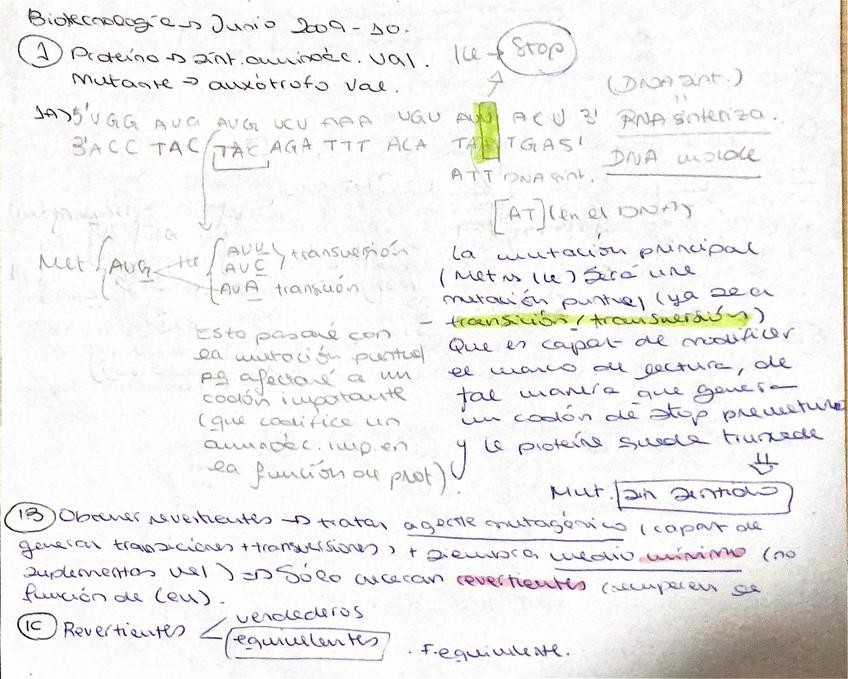 Biotecnología → Junio 2009-10.
① Proteína → sint. aminoác. val.
Mutante → auxótrofo val.
Ile → Stop
(DNA sint.)
1A) 5' UGG AUG AUG UCU AAA UGU AUU ACU 3' RNA sintetiza.
3' ACC TAC TAC AGA TTT ACA TA TGA 5' DNA molde
ATT DNA sint.
[AT] (en el DNA)
Met { AUG Ile { AUU AUC } transversión
AUA transición
La mutación principal
(Met → Ile) será una
mutación puntual (ya sea
- transición/transversión)
Que es capaz de modificar
el marco de lectura, de
tal manera que genera
un codón de stop prematuro
y la proteína quede truncada
⇓
Mut. sin sentido
Esto pasará con
la mutación puntual
pq afectará a un
codón importante
(que codifica un
aminoác. imp. en
la función de prot).
1B Obtener revertientes → tratar agente mutagénico (capaz de
generar transiciones + transversiones) + siembra medio mínimo (no
suplementos val) ⇒ Sólo crecerán revertientes (recuperen la
función de
1C Revertientes < verdaderos
equivalentes . F. equivalente.